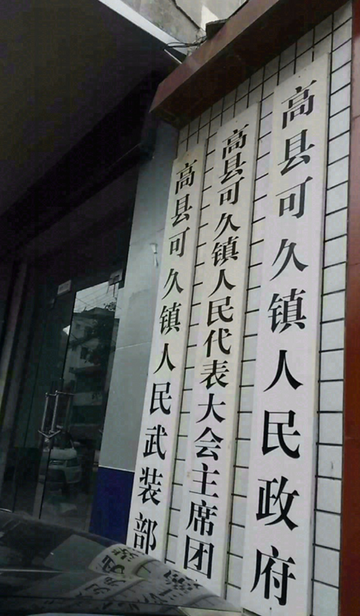 高县可久镇人民政府
高县可久镇人民代表大会主席团
高县可久镇人民武装部